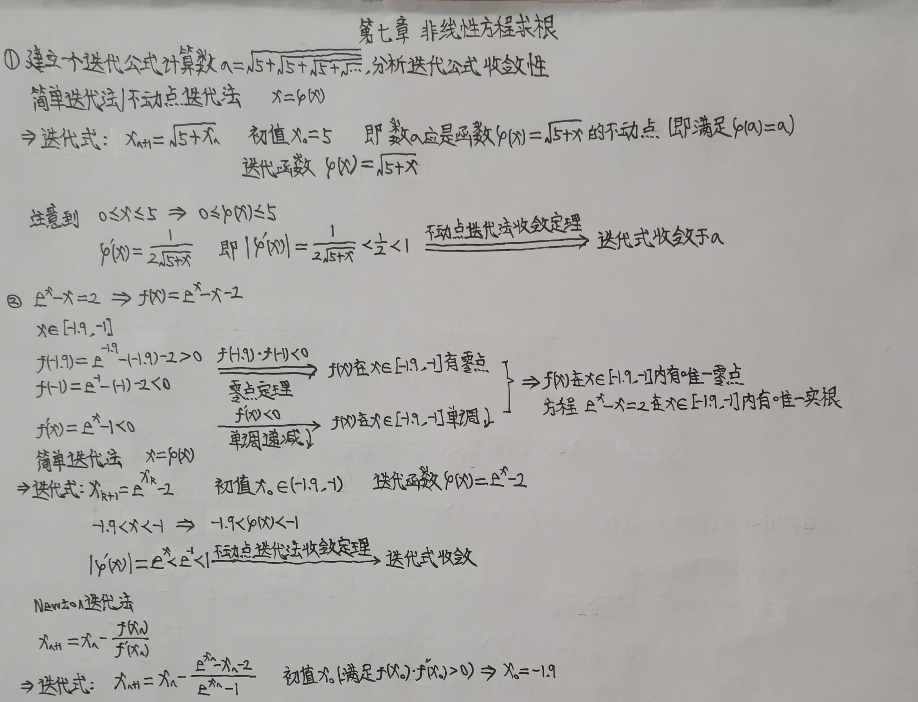 第七章 非线性方程求根
① 建立一个迭代公式计算数a=√(5+√(5+√(5+√…))),分析迭代公式收敛性
简单迭代法/不动点迭代法 x=φ(x)
⇒迭代式: xₙ₊₁=√(5+xₙ) 初值x₀=5 即数a应是函数φ(x)=√(5+x)的不动点 (即满足φ(a)=a)
迭代函数 φ(x)=√(5+x)
注意到 0≤x≤5 ⇒ 0≤φ(x)≤5
φ'(x)=1/(2√(5+x)) 即|φ'(x)|=1/(2√(5+x))<1/2<1 不动点迭代法收敛定理 ⇒ 迭代式收敛于a
② eˣ-x=2 ⇒ f(x)=eˣ-x-2
x∈[-1.9,-1]
f(-1.9)=e⁻¹·⁹-(-1.9)-2>0 f(-1.9)·f(-1)<0 零点定理 ⇒ f(x)在x∈[-1.9,-1]有零点
f(-1)=e⁻¹-(-1)-2<0
f'(x)=eˣ-1<0 f'(x)<0 单调递减↓ ⇒ f(x)在x∈[-1.9,-1]单调↓
⇒ f(x)在x∈[-1.9,-1]内有唯一零点
方程 eˣ-x=2在x∈[-1.9,-1]内有唯一实根
简单迭代法 x=φ(x)
⇒迭代式: xₖ₊₁=e^(xₖ)-2 初值x₀∈(-1.9,-1) 迭代函数φ(x)=eˣ-2
-1.9<x<-1 ⇒ -1.9<φ(x)<-1
|φ'(x)|=eˣ<e⁻¹<1 不动点迭代法收敛定理 ⇒ 迭代式收敛
Newton迭代法
xₙ₊₁=xₙ-f(xₙ)/f'(xₙ)
⇒迭代式: xₙ₊₁=xₙ-(e^(xₙ)-xₙ-2)/(e^(xₙ)-1) 初值x₀(满足f(x₀)·f''(x₀)>0) ⇒ x₀=-1.9